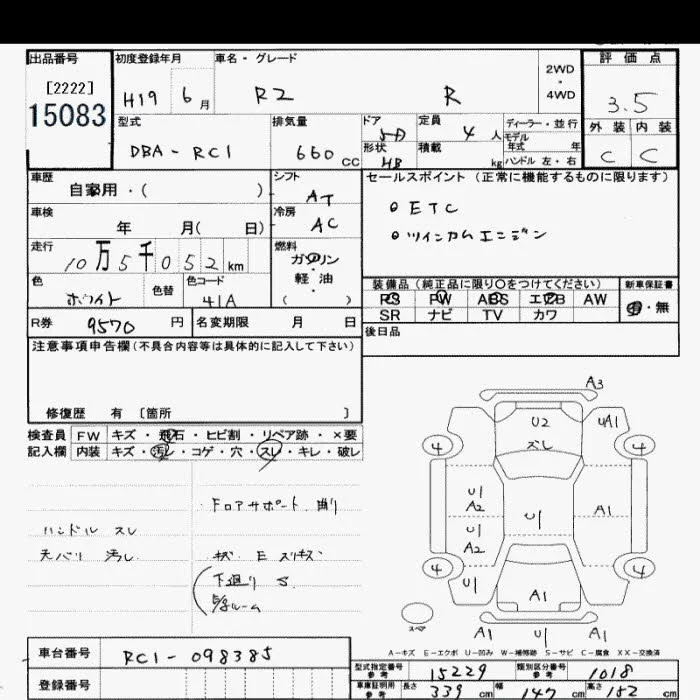 出品番号 初度登録年月 車名・グレード 2WD・4WD 評価点
[2222]
15083 H19 6月 R2 R 3.5
型式 排気量 ドア 定員 4人 ディーラー・並行 外装 内装
DBA-RC1 660cc 5D モデル年式 年 C C
形状 HB 積載 kg ハンドル 左・右
車歴 自家用・( ) シフト AT セールスポイント (正常に機能するものに限ります)
車検 年 月( 日) 冷房 AC ETC
走行 10万5千052km 燃料 ガソリン・軽油 ( ) ツインカムエンジン
色 ホワイト 色替 色コード 41A 装備品 (純正品に限り〇をつけてください) 新車保証書
PS PW ABS エアB AW 有・無
R券 9570円 名変期限 月 日 SR ナビ TV カワ
注意事項申告欄 (不具合内容等は具体的に記入して下さい) 後日品
修復歴 有 [箇所 ]
検査員 FW キズ・飛石・ヒビ割・リペア跡・×要
記入欄 内装 キズ・汚レ・コゲ・穴・スレ・キレ・破レ
ドロアサポート
ハンドル スレ
天バリ 汚レ
下廻り S
A3
U2 UA1
ズレ
4 4
U1
A2 A1
U1 U1
A2
4 4
U1 A1
スペア A1 U1 A1
A-キズ E-エクボ U-凹み W-補修跡 S-サビ C-腐食 XX-交換済
車台番号 RC1-098385 型式指定番号 参考 15229 類別区分番号 参考 1018
登録番号 車庫証明用 参考 長さ 339cm 幅 147cm 高さ 152cm